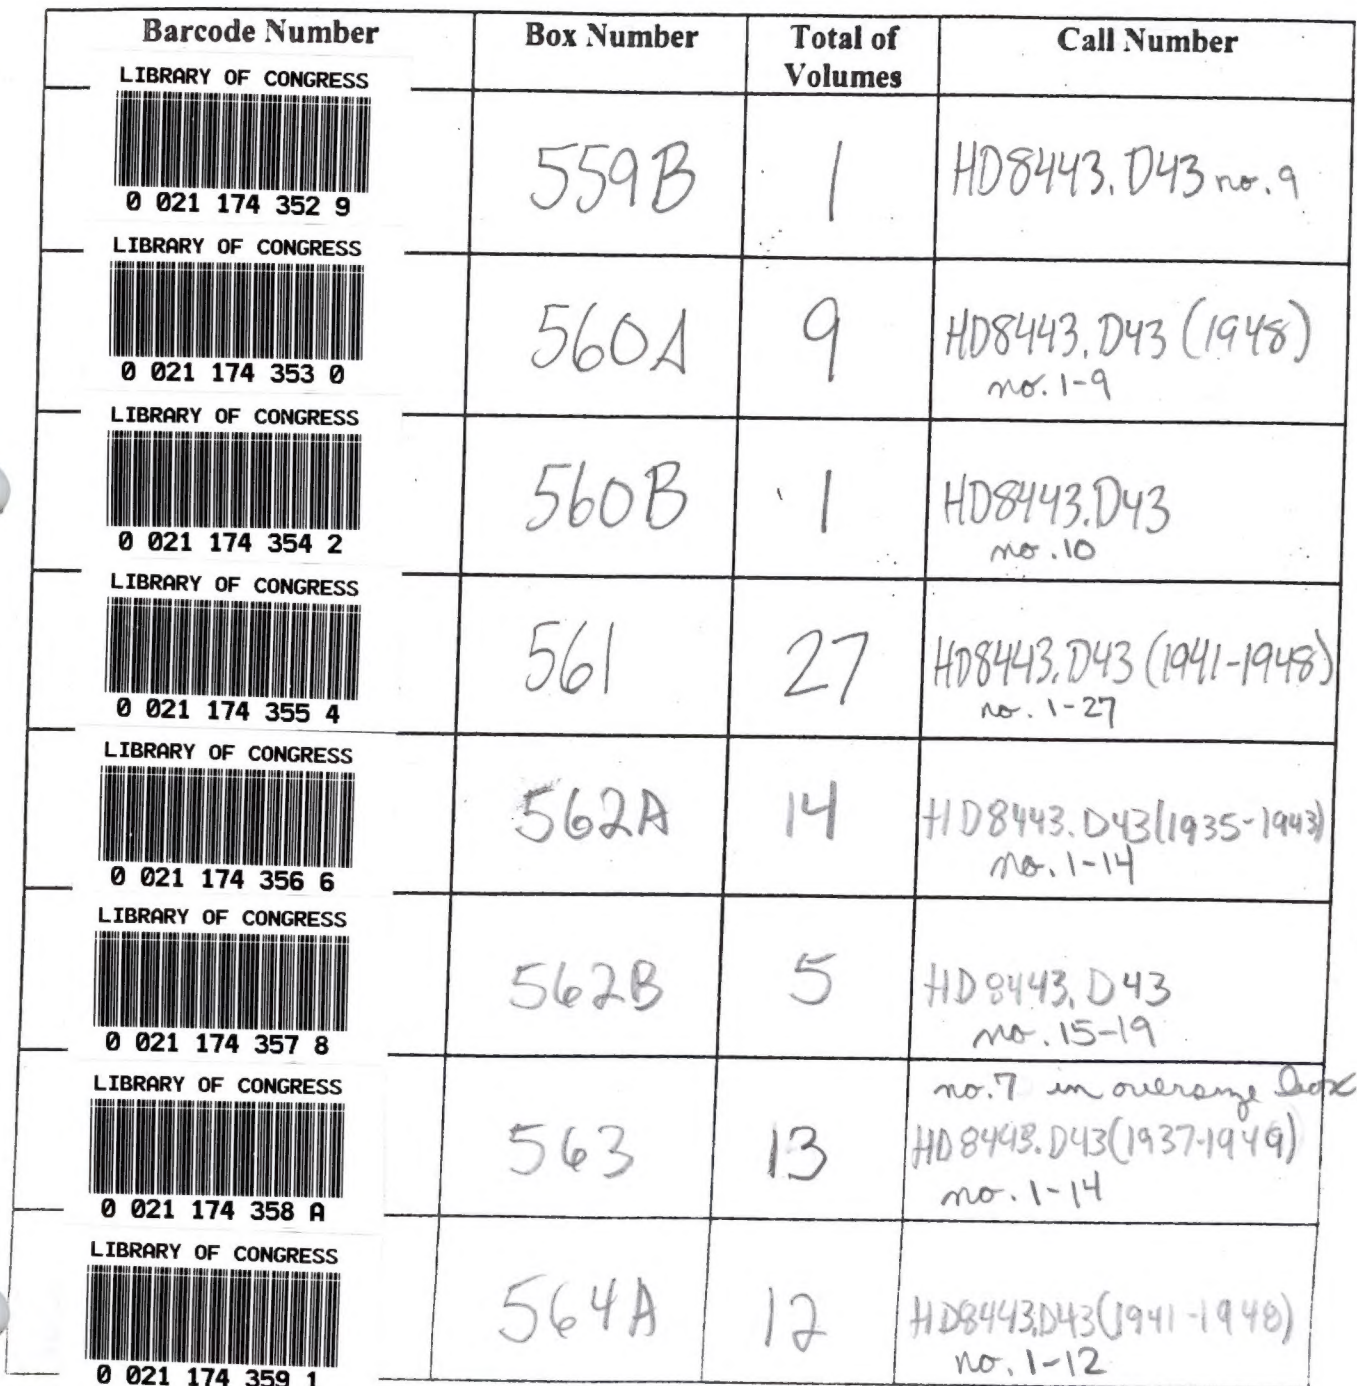 Barcode Number Box Number Total of Volumes Call Number
LIBRARY OF CONGRESS
0 021 174 352 9
559B
1
HD8443.D43 no.9
LIBRARY OF CONGRESS
0 021 174 353 0
560A
9
HD8443.D43 (1948)
no. 1-9
LIBRARY OF CONGRESS
0 021 174 354 2
560B
1
HD8443.D43
no.10
LIBRARY OF CONGRESS
0 021 174 355 4
561
27
HD8443.D43 (1941-1948)
no. 1-27
LIBRARY OF CONGRESS
0 021 174 356 6
562A
14
HD8443.D43(1935-1943)
no. 1-14
LIBRARY OF CONGRESS
0 021 174 357 8
562B
5
HD8443.D43
no. 15-19
LIBRARY OF CONGRESS
0 021 174 358 A
563
13
no.7 in oversize box
HD8443.D43(1937-1949)
no. 1-14
LIBRARY OF CONGRESS
0 021 174 359 1
564A
12
HD8443.D43(1941-1948)
no. 1-12